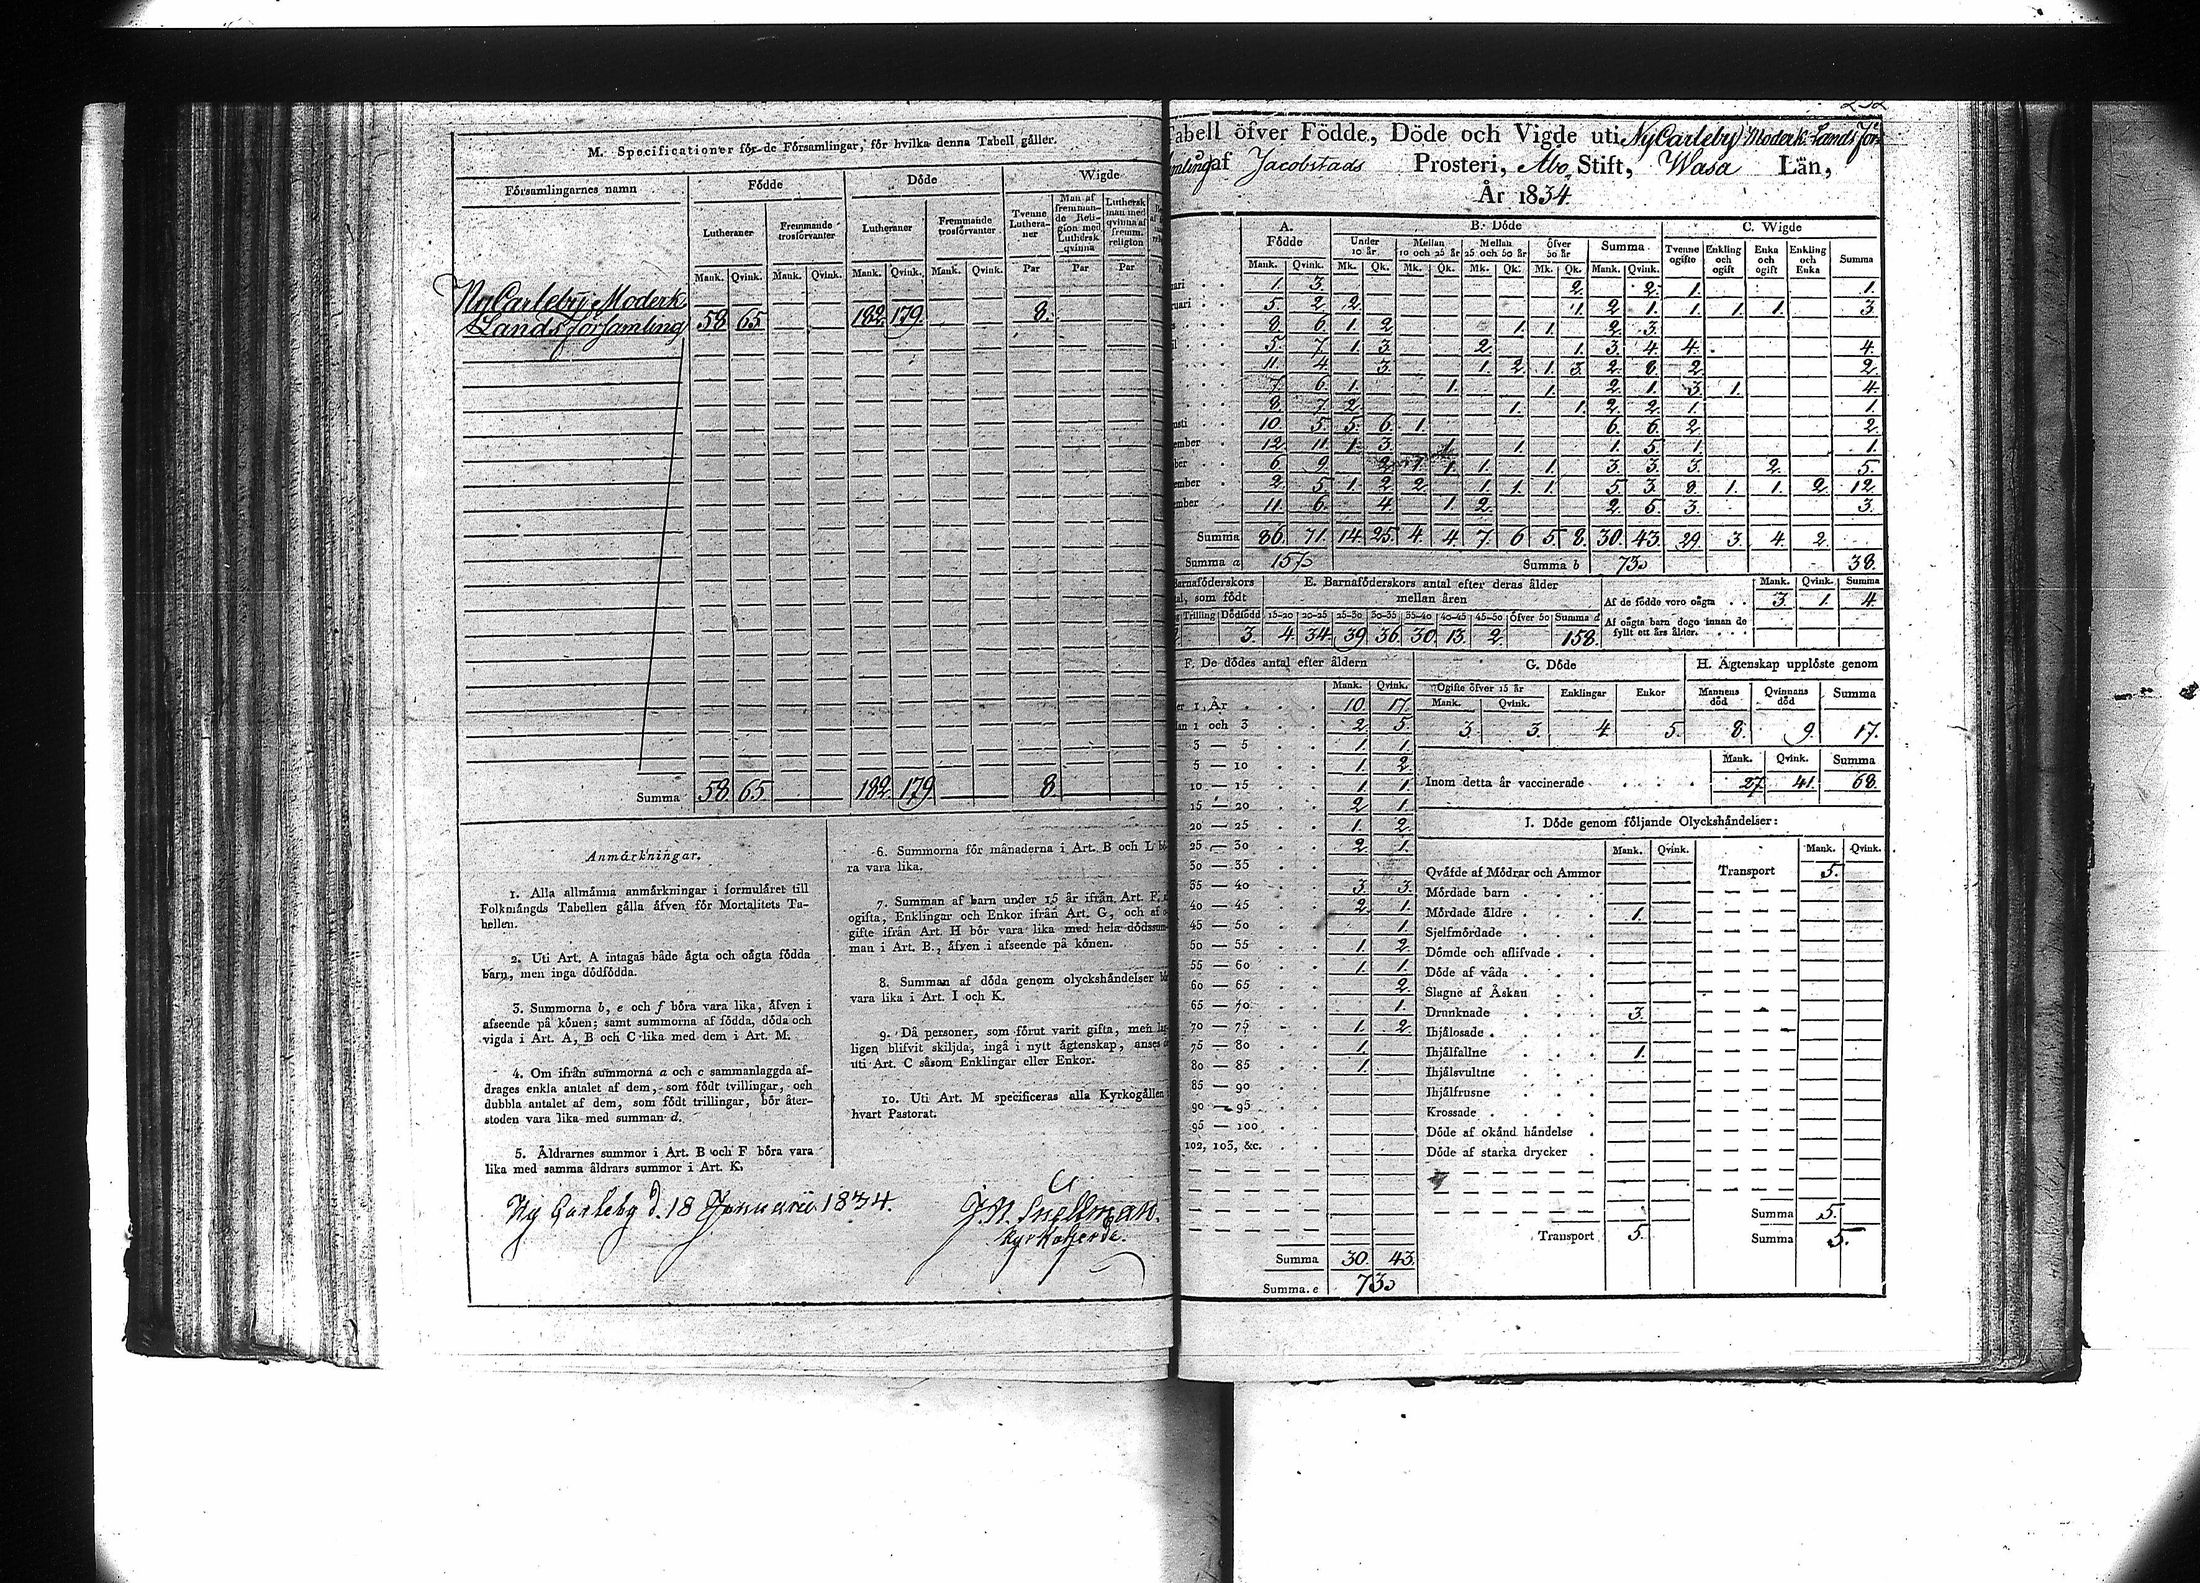 M. Specificationer för de Församlingar, för hvilka denna Tabell gäller.
Församlingarnes namn
Födde
Döde
Wigde
Lutheraner
Fremmande trosförvanter
Lutheraner
Fremmande trosförvanter
Tvenne Lutheraner
Man af fremmande Religion med Luthersk qvinna
Luthersk man med qvinna af fremm. religion
Mank. Qvink. Mank. Qvink. Mank. Qvink. Mank. Qvink. Par Par Par
NyCarleby Moderk.
Lands församling 58 65 182 179 8.
Summa 58 65 182 179 8.
Anmärkningar.
1. Alla allmänna anmärkningar i formuläret till
Folkmängds Tabellen gälla äfven för Mortalitets Ta-
bellen.
2. Uti Art. A intagas både ägta och oägta födda
barn, men inga dödfödda.
3. Summorna b, e och f böra vara lika, äfven i
afseende på könen; samt summorna af födda, döda och
vigda i Art. A, B och C lika med dem i Art. M.
4. Om ifrån summorna a och c sammanlaggda af-
drages enkla antalet af dem, som födt tvillingar, och
dubbla antalet af dem, som födt trillingar, bör åter-
stoden vara lika med summan d.
5. Åldrarnes summor i Art. B och F böra vara
lika med samma åldrars summor i Art. K.
6. Summorna för månaderna i Art. B och L bö-
ra vara lika.
7. Summan af barn under 15 år ifrån Art. F,
ogifta, Enklingar och Enkor ifrån Art. G, och af
gifte ifrån Art. H bör vara lika med hela dödssum-
man i Art. B., äfven i afseende på könen.
8. Summan af döda genom olyckshändelser bör
vara lika i Art. I och K.
9. Då personer, som förut varit gifta, men lag-
ligen blifvit skiljda, ingå i nytt ägtenskap, anses
uti Art. C såsom Enklingar eller Enkor.
10. Uti Art. M specificeras alla Kyrkogällen
hvart Pastorat.
Ny Carleby d. 18 Januarii 1834.
J. N. Snellman.
Kyrkoherde.
Tabell öfver Födde, Döde och Vigde uti NyCarleby Moderk. Lands För-
samling af Jacobstads Prosteri, Åbo Stift, Wasa Län,
År 1834.
A. Födde
B. Döde
C. Wigde
Under 10 år
Mellan 10 och 25 år
Mellan 25 och 50 år
Öfver 50 år
Summa
Tvenne ogifte
Enkling och ogift
Enka och ogift
Enkling och Enka
Summa
Mank. Qvink. Mk. Qk. Mk. Qk. Mk. Qk. Mk. Qk. Mank. Qvink.
uari 1. 3. 2. 2. 1. 1.
uari 5. 2. 2. 1. 2. 1. 1. 1. 1. 3.
8. 6. 1. 2. 1. 1. 2. 3.
5. 7. 1. 3. 2. 1. 3. 4. 4. 4.
11. 4. 3. 1. 2. 1. 3. 2. 8. 2. 2.
7. 6. 1. 1. 1. 2. 1. 3. 1. 4.
8. 7. 2. 1. 1. 2. 2. 1. 1.
usti 10. 5. 5. 6. 1. 6. 6. 2. 2.
ember 12. 11. 1. 3. 1. 1. 1. 5. 1. 1.
ber 6. 9. 2. 1. 1. 1. 1. 3. 3. 3. 2. 5.
ember 2. 5. 1. 2. 2. 1. 1. 1. 5. 3. 8. 1. 1. 2. 12.
ember 11. 6. 4. 1. 2. 2. 5. 3. 3.
Summa 86. 71. 14. 25. 4. 4. 7. 6. 5. 8. 30. 43. 29. 3. 4. 2.
Summa a 157 Summa b 73 38.
Barnaföderskors
tal, som födt
Trilling Dödfödd
3.
E. Barnaföderskors antal efter deras ålder
mellan åren
15-20 20-25 25-30 30-35 35-40 40-45 45-50 Öfver 50 Summa d
4. 34. 39. 36. 30. 13. 2. 158.
Mank. Qvink. Summa
Af de födde voro oägta . . 3. 1. 4.
Af oägta barn dogo innan de
fyllt ett års ålder.
F. De dödes antal efter åldern
Mank. Qvink.
er 1 År 10. 17.
an 1 och 3 2. 5.
3 — 5 1. 1.
5 — 10 1. 2.
10 — 15 1. 1.
15 — 20 2. 1.
20 — 25 1. 2.
25 — 30 2. 1.
30 — 35
35 — 40 3. 3.
40 — 45 2. 1.
45 — 50 1.
50 — 55 1. 2.
55 — 60 1. 1.
60 — 65 2.
65 — 70 1.
70 — 75 1. 2.
75 — 80 1.
80 — 85 1.
85 — 90
90 — 95
95 — 100
102, 103, &c.
Summa 30. 43.
Summa e 73
G. Döde
Ogifte öfver 15 år
Mank. Qvink.
Enklingar
Enkor
3. 3. 4. 5.
H. Ägtenskap upplöste genom
Mannens död
Qvinnans död
Summa
8. 9. 17.
Mank. Qvink. Summa
Inom detta år vaccinerade 27. 41. 68.
I. Döde genom följande Olyckshändelser:
Mank. Qvink. Mank. Qvink.
Qväfde af Mödrar och Ammor Transport 5.
Mördade barn
Mördade äldre 1.
Sjelfmördade
Dömde och aflifvade
Döde af våda
Slagne af Åskan
Drunknade 3.
Ihjälosade
Ihjälfallne 1.
Ihjälsvultne
Ihjälfrusne
Krossade
Döde af okänd händelse
Döde af starka drycker
Summa 5.
Transport 5. Summa 5.